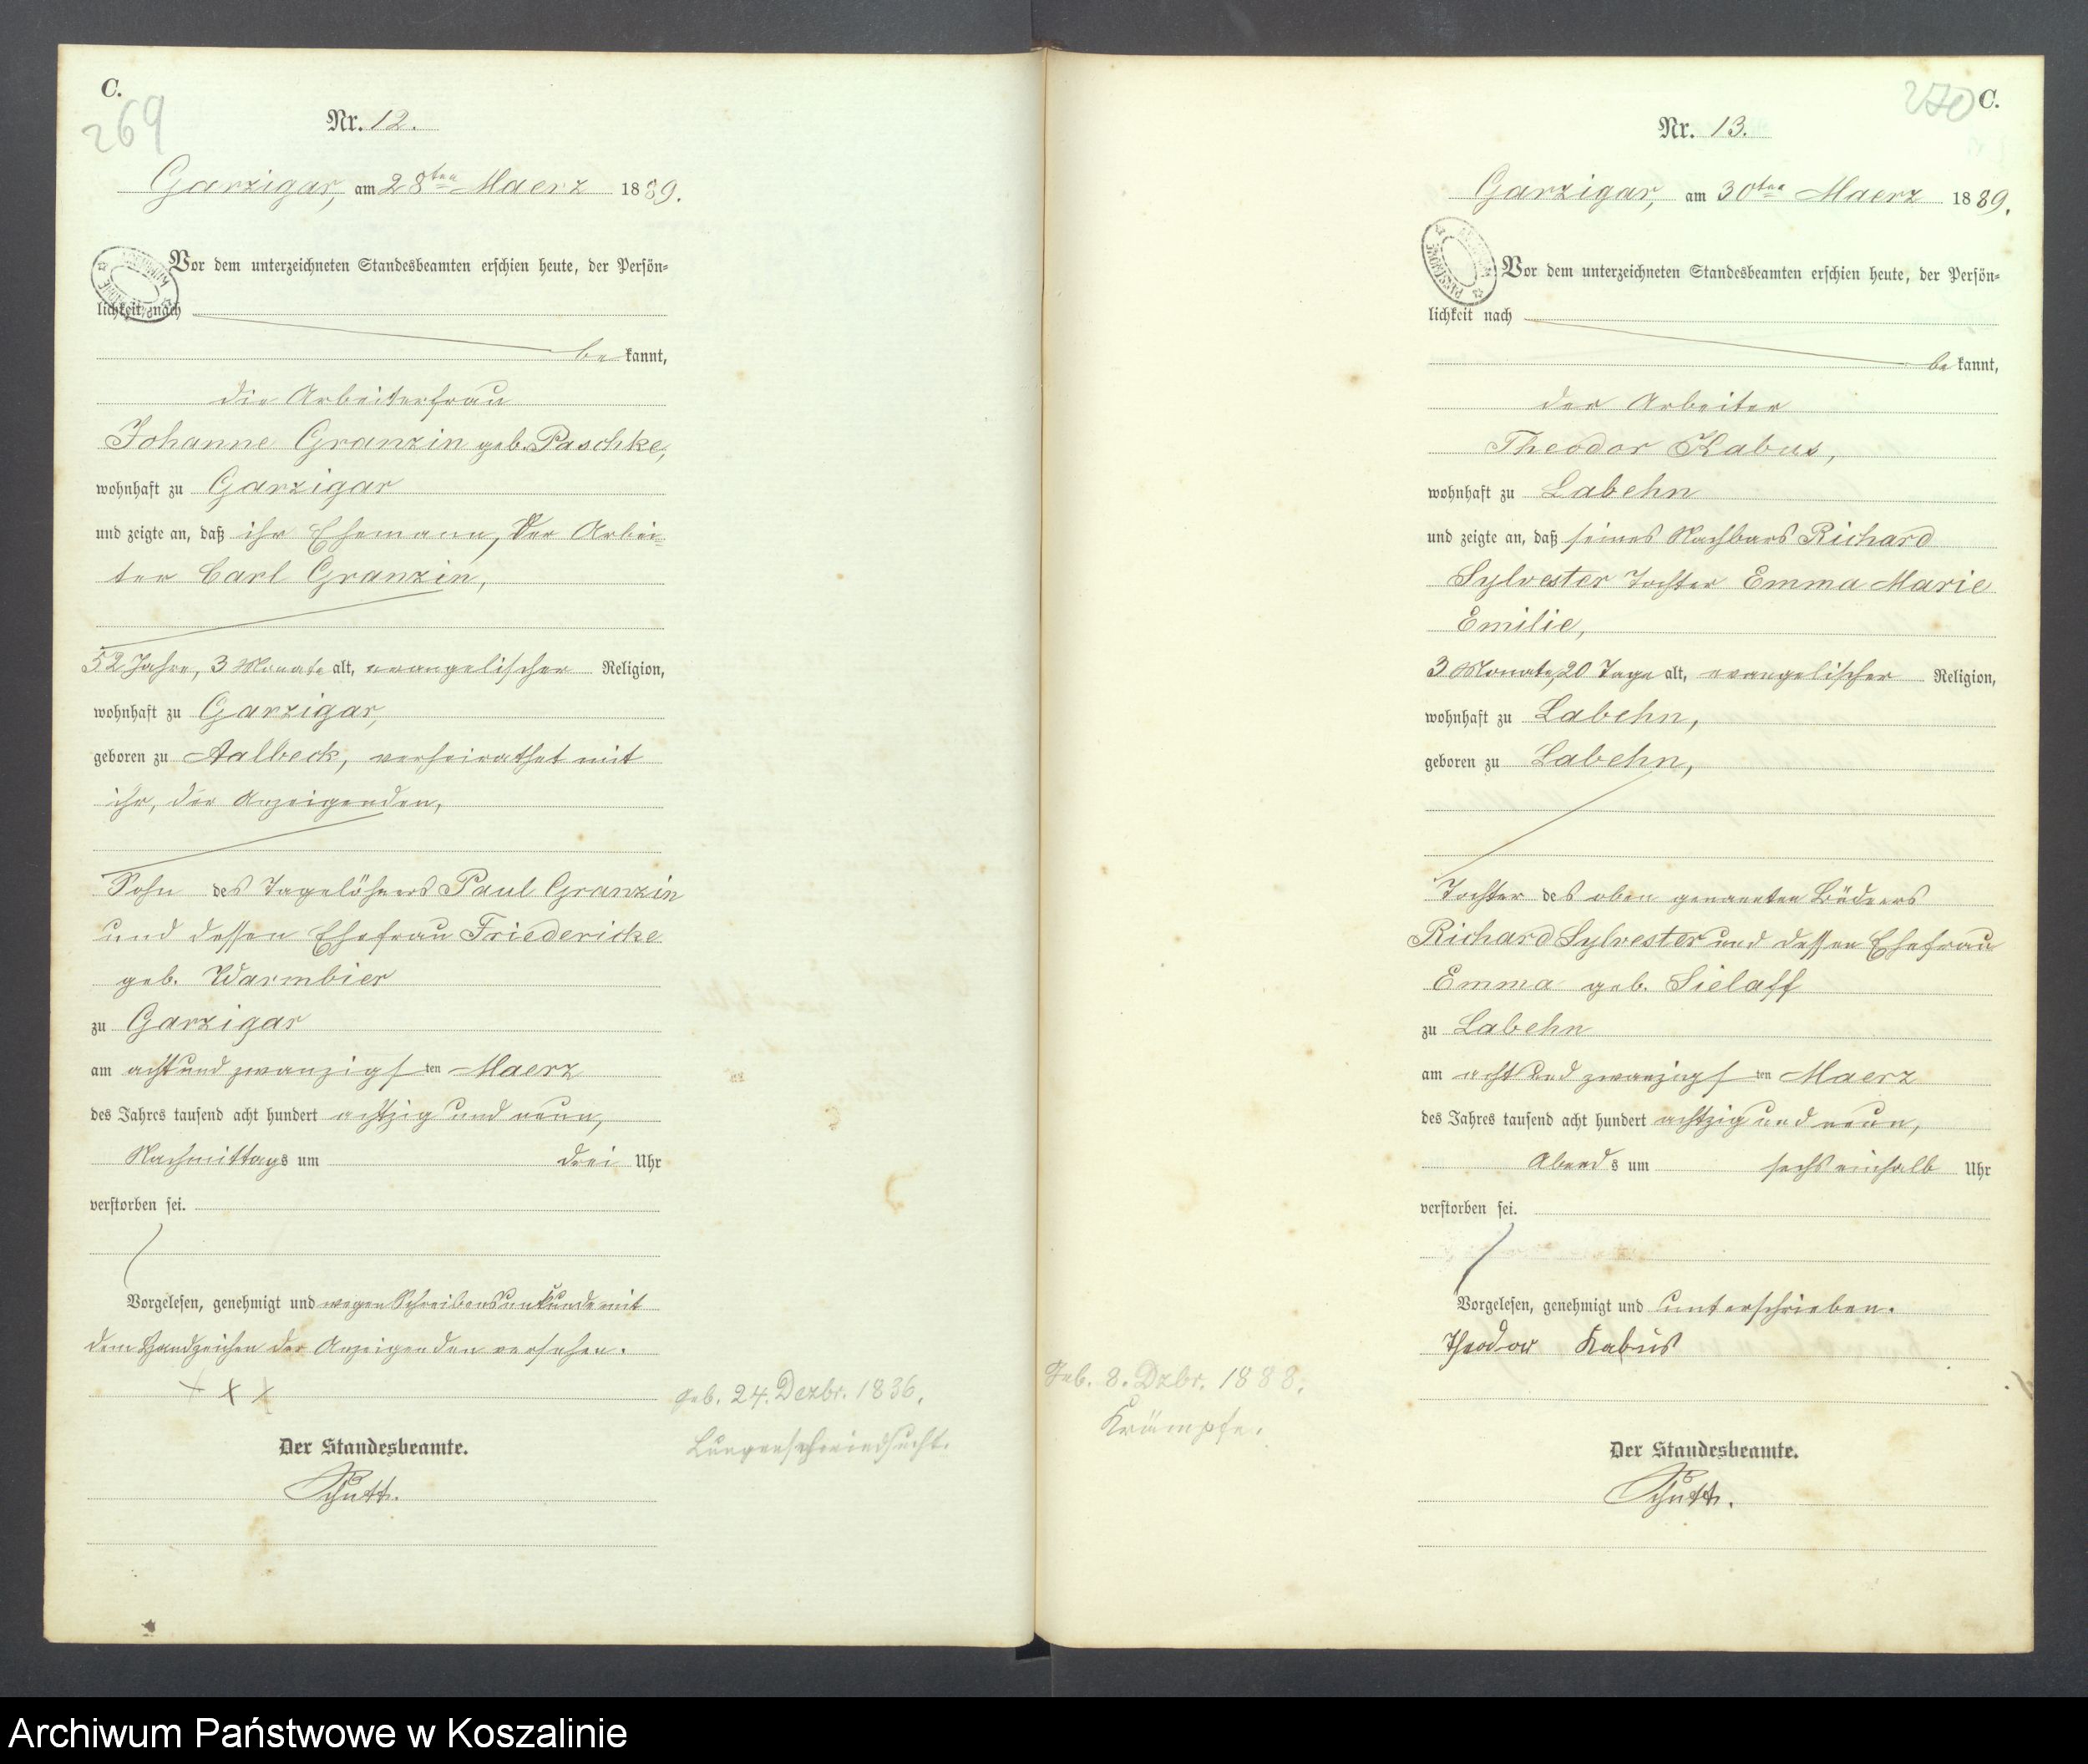 C.
269
Nr. 12.
Garzigar, am 28ten Maerz 1889.
Vor dem unterzeichneten Standesbeamten erschien heute, der Persön-
lichkeit nach
be kannt,
die Arbeiterfrau
Johanne Granzin geb. Paschke,
wohnhaft zu Garzigar
und zeigte an, daß ihr Ehemann, der Arbei-
ter Carl Granzin,
52 Jahre, 3 Monate alt, evangelischer Religion,
wohnhaft zu Garzigar,
geboren zu Aalbeck, verheirathet mit
ihr, der Anzeigenden,
Sohn des Tagelöhners Paul Granzin
und dessen Ehefrau Friedericke
geb. Warmbier
zu Garzigar
am acht und zwanzigsten Maerz
des Jahres tausend acht hundert achtzig und neun,
Nachmittags um drei Uhr
verstorben sei.
Vorgelesen, genehmigt und wegen Schreibensunkunde mit
dem Handzeichen der Anzeigenden versehen.
+ x x
geb. 24. Dezbr. 1836.
Lungenschwindsucht.
Der Standesbeamte.
Schütt.
270 C.
Nr. 13.
Garzigar, am 30ten Maerz 1889.
Vor dem unterzeichneten Standesbeamten erschien heute, der Persön-
lichkeit nach
be kannt,
der Arbeiter
Theodor Kabus,
wohnhaft zu Labehn
und zeigte an, daß seines Nachbars Richard
Sylvester Tochter Emma Marie
Emilie,
3 Monate, 20 Tage alt, evangelischer Religion,
wohnhaft zu Labehn,
geboren zu Labehn,
Tochter des oben genannten Büdners
Richard Sylvester und dessen Ehefrau
Emma geb. Sielaff
zu Labehn
am acht und zwanzigsten Maerz
des Jahres tausend acht hundert achtzig und neun,
Abends um sechs einhalb Uhr
verstorben sei.
Vorgelesen, genehmigt und unterschrieben.
Theodor Kabus
Geb. 8. Dzbr. 1888.
Krämpfe.
Der Standesbeamte.
Schütt.
Archiwum Państwowe w Koszalinie